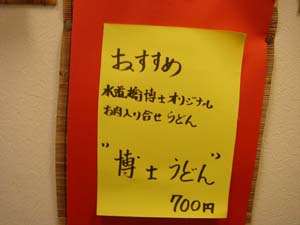 おすすめ
水道橋博士オリジナル
お肉入り合せうどん
"博士うどん"
700円